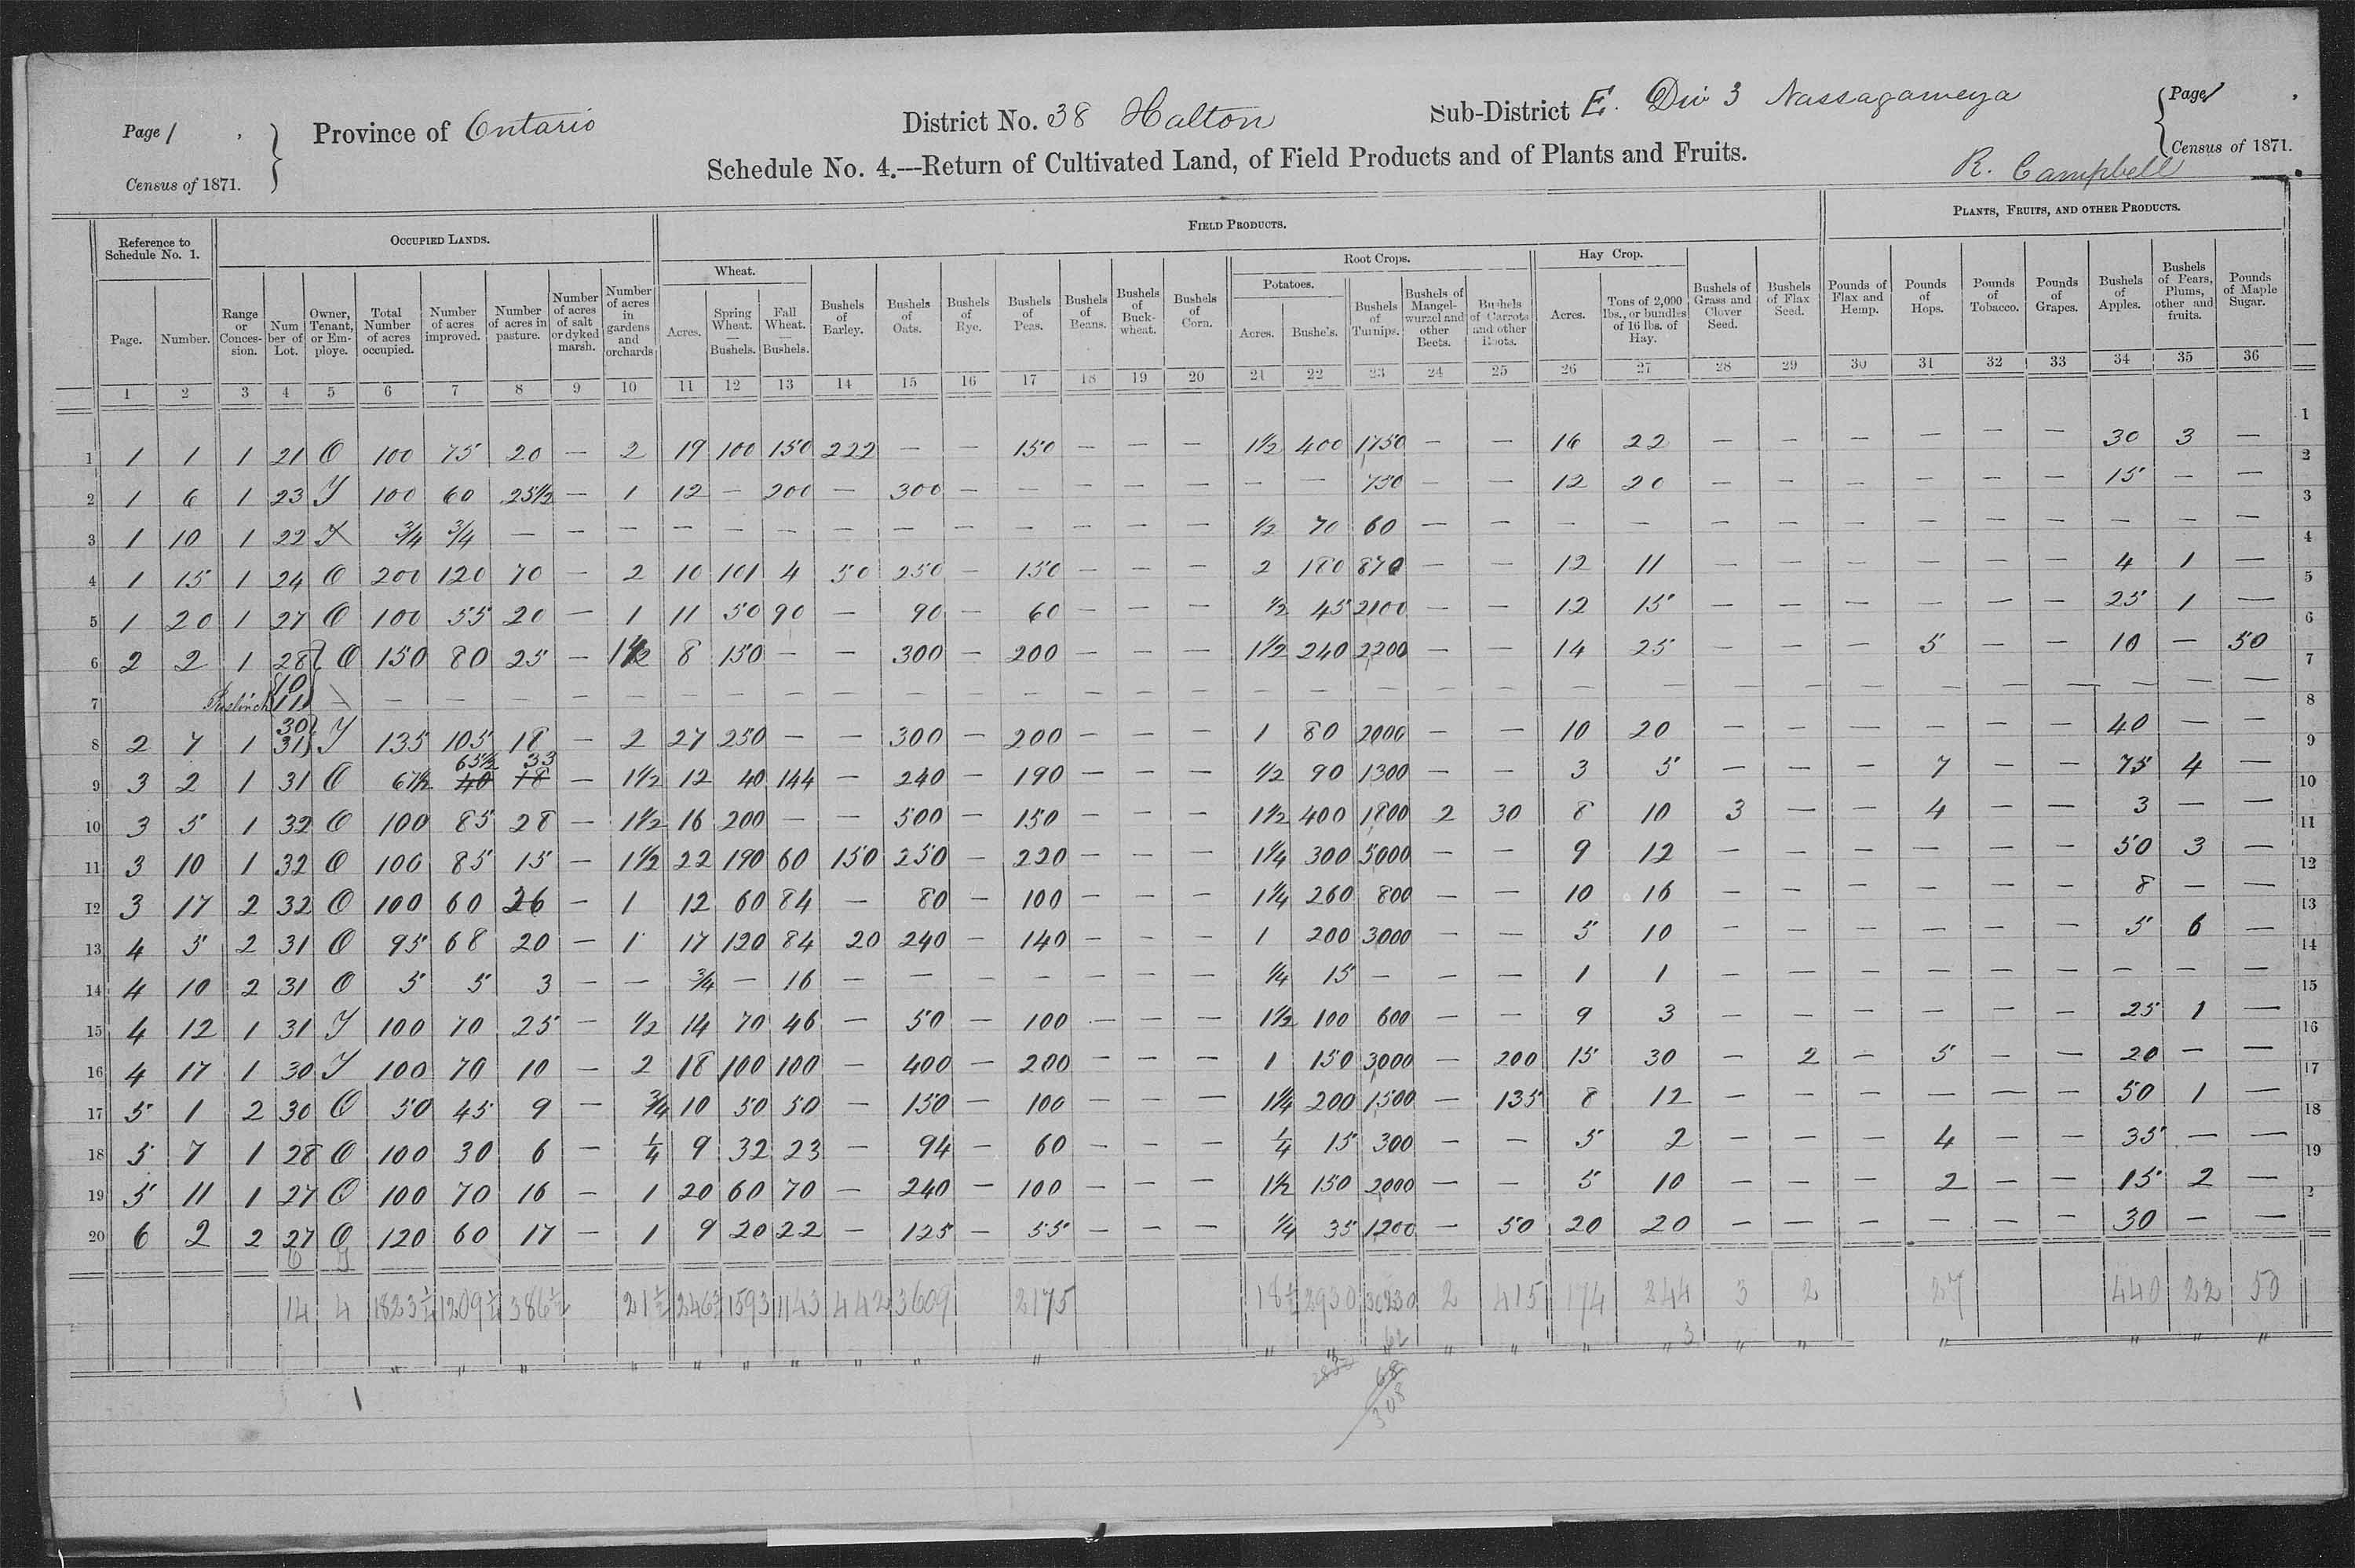 Page 1
Province of Ontario
District No. 38 Halton
Sub-District E. Div 3 Nassagaweya
Page 1
Census of 1871.
Schedule No. 4.—Return of Cultivated Land, of Field Products and of Plants and Fruits.
R. Campbell
Census of 1871.
Reference to Schedule No. 1.
OCCUPIED LANDS.
FIELD PRODUCTS.
PLANTS, FRUITS, AND OTHER PRODUCTS.
Wheat.
Root Crops.
Hay Crop.
Potatoes.
Page. Number. Range or Concession. Number of Lot. Owner, Tenant, or Employe. Total Number of acres occupied. Number of acres improved. Number of acres in pasture. Number of acres of salt or dyked marsh. Number of acres in gardens and orchards Acres. Spring Wheat. — Bushels. Fall Wheat. — Bushels. Bushels of Barley. Bushels of Oats. Bushels of Rye. Bushels of Peas. Bushels of Beans. Bushels of Buckwheat. Bushels of Corn. Acres. Bushels. Bushels of Turnips. Bushels of Mangel-wurzel and other Beets. Bushels of Carrots and other Roots. Acres. Tons of 2,000 lbs., or bundles of 16 lbs. of Hay. Bushels of Grass and Clover Seed. Bushels of Flax Seed. Pounds of Flax and Hemp. Pounds of Hops. Pounds of Tobacco. Pounds of Grapes. Bushels of Apples. Bushels of Pears, Plums, other and fruits. Pounds of Maple Sugar.
1 2 3 4 5 6 7 8 9 10 11 12 13 14 15 16 17 18 19 20 21 22 23 24 25 26 27 28 29 30 31 32 33 34 35 36
1 1 1 1 21 O 100 75 20 — 2 19 100 150 222 — — 150 — — — 1½ 400 1750 — — 16 22 — — — — — — 30 3 — 1
2 1 6 1 23 T 100 60 25½ — 1 12 — 200 — 300 — — — — — — — 750 — — 12 20 — — — — — — 15 — — 2
3 1 10 1 22 ¾ ¾ — — — — — — — — — — — — — ½ 70 60 — — — — — — — — — — — — — 3
4 1 15 1 24 O 200 120 70 — 2 10 101 4 50 250 — 150 — — — 2 180 870 — — 12 11 — — — — — — 4 1 — 4
5 1 20 1 27 O 100 55 20 — 1 11 50 90 — 90 — 60 — — — ½ 45 2100 — — 12 15 — — — — — — 25 1 — 5
6 2 2 1 28 O 150 80 25 — 1½ 8 150 — — 300 — 200 — — — 1½ 240 2200 — — 14 25 — — — 5 — — 10 — 50 6
7 Puslinch 10 11 — — — — — — — — — — — — — — — — — — — — — — — — — — — — — — — 7
8 2 7 1 30 31 T 135 105 18 — 2 27 250 — — 300 — 200 — — — 1 80 2000 — — 10 20 — — — — — — 40 — — 8
9 3 2 1 31 O 67½ 40 65½ 18 33 — 1½ 12 40 144 — 240 — 190 — — — ½ 90 1300 — — 3 5 — — — 7 — — 75 4 — 9
10 3 5 1 32 O 100 85 28 — 1½ 16 200 — — 500 — 150 — — — 1½ 400 1800 2 30 8 10 3 — — 4 — — 3 — — 10
11 3 10 1 32 O 100 85 15 — 1½ 22 190 60 150 250 — 220 — — — 1¼ 300 5000 — — 9 12 — — — — — — 50 3 — 11
12 3 17 2 32 O 100 60 26 — 1 12 60 84 — 80 — 100 — — — 1¼ 260 800 — — 10 16 — — — — — — 8 — — 12
13 4 5 2 31 O 95 68 20 — 1 17 120 84 20 240 — 140 — — — 1 200 3000 — — 5 10 — — — — — — 5 6 — 13
14 4 10 2 31 O 5 5 3 — — ¾ — 16 — — — — — — — ¼ 15 — — — 1 1 — — — — — — — — — 14
15 4 12 1 31 T 100 70 25 — ½ 14 70 46 — 50 — 100 — — — 1½ 100 600 — — 9 3 — — — — — — 25 1 — 15
16 4 17 1 30 T 100 70 10 — 2 18 100 100 — 400 — 200 — — — 1 150 3000 — 200 15 30 — 2 — 5 — — 20 — — 16
17 5 1 2 30 O 50 45 9 — ¾ 10 50 50 — 150 — 100 — — — 1¼ 200 1500 — 135 8 12 — — — — — — 50 1 — 17
18 5 7 1 28 O 100 30 6 — ¼ 9 32 23 — 94 — 60 — — — ¼ 15 300 — — 5 2 — — — 4 — — 35 — — 18
19 5 11 1 27 O 100 70 16 — 1 20 60 70 — 240 — 100 — — — 1½ 150 2000 — — 5 10 — — — 2 — — 15 2 — 19
20 6 2 2 27 O 120 60 17 — 1 9 20 22 — 125 — 55 — — — ¼ 35 1200 — 50 20 20 — — — — — — 30 — — 2
14 4 1823¼ 1209¼ 386½ 21½ 246¾ 1593 1143 442 3609 2175 18½ 2930 30230 2 415 174 244 3 2 27 440 22 50
" " " " " " " " " " " " " " " " 3 " " " " " "
68
308